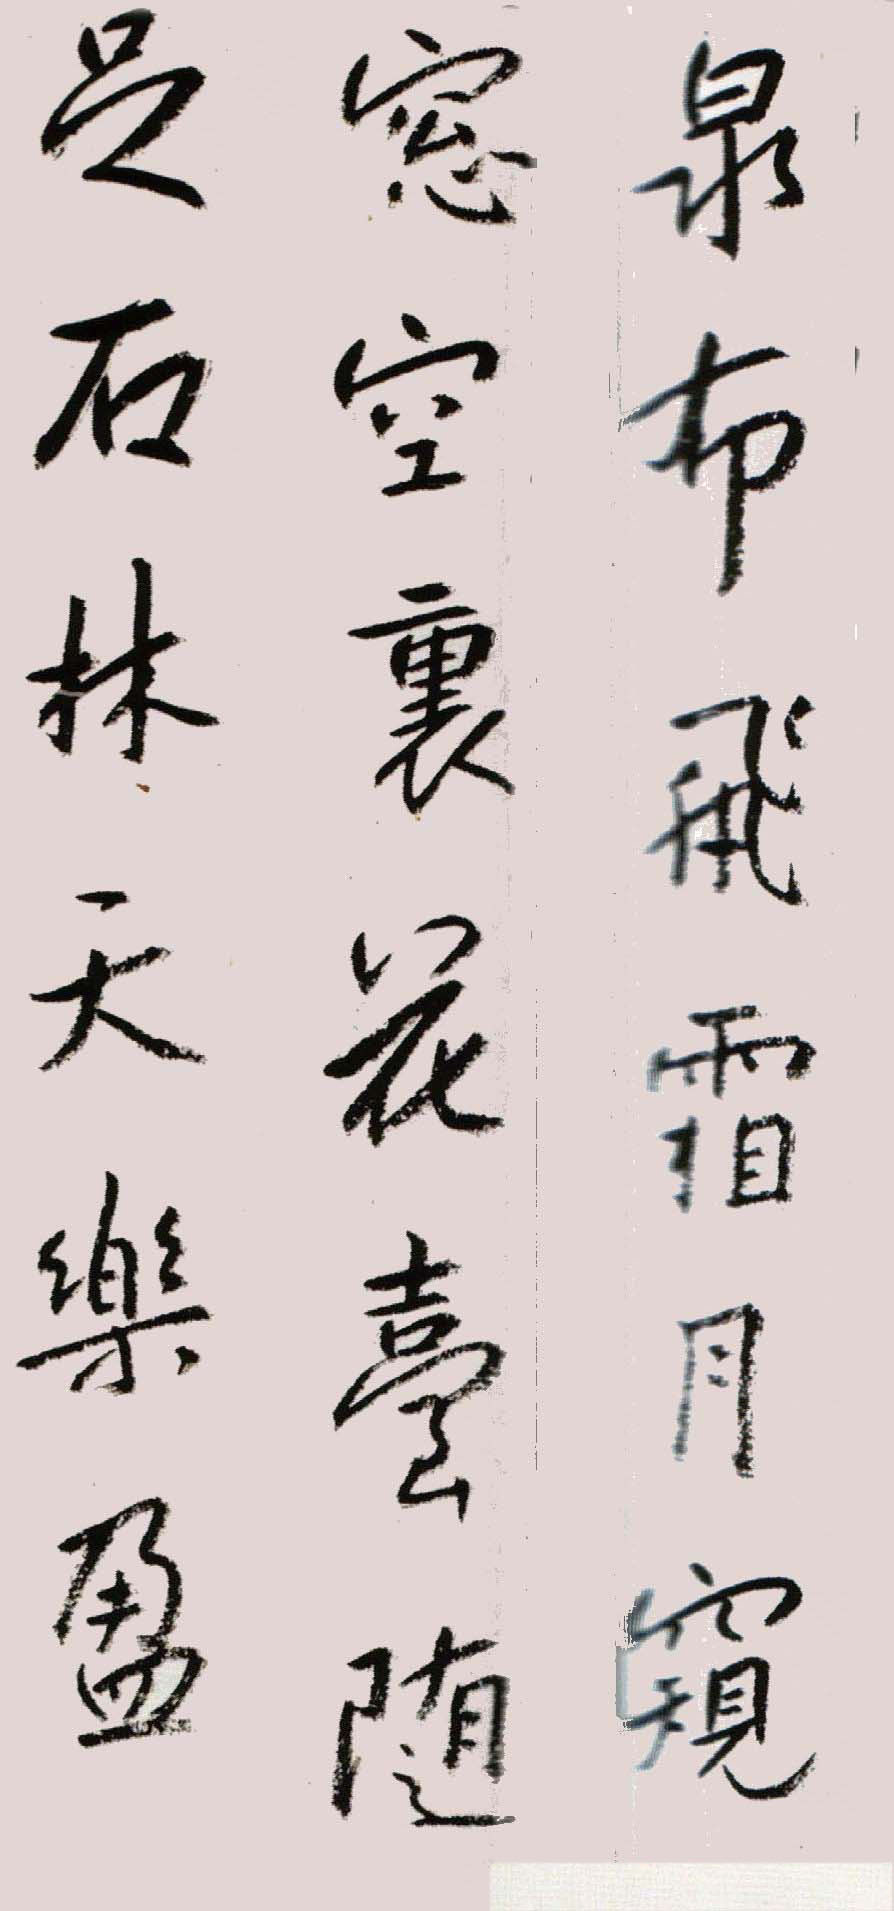 泉布飛霜月窺
窓空裏花臺随
足石林天樂盈